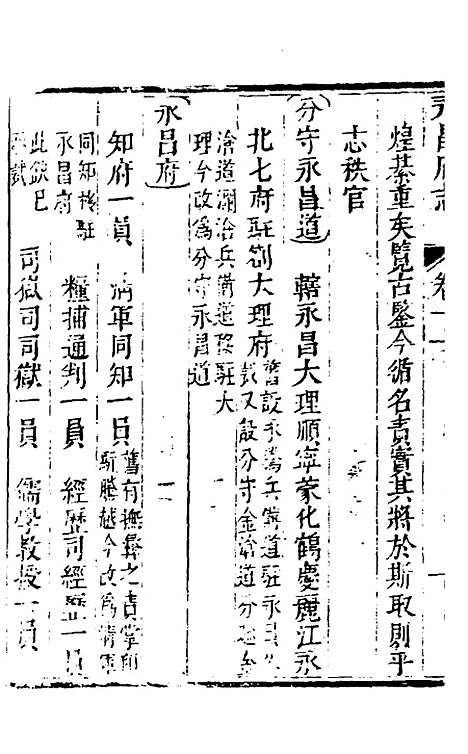 永昌府志 卷
煌綦重矣覽古鑒今循名責實其將於斯取則乎
志秩官
分守永昌道 轄永昌大理順寧蒙化鶴慶麗江永
北七府駐劄大理府舊設永昌兵備道駐永
裁又設分守金滄道分
滄道瀾滄兵備道移駐大
理今改為分守永昌道
永昌府
知府一員 清軍同知一員舊有撫彝之責掌印
駐騰越今改為清軍
同知移駐
永昌府 糧捕通判一員 經歷司經歷一員
此缺已
司獄司司獄一員 儒學教授一員